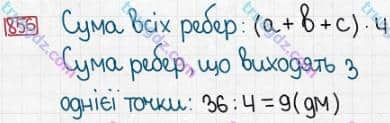 856 Сума всіх ребер: (a + b + c) · 4
Сума ребер, що виходять з
однієї точки: 36 : 4 = 9 (дм)